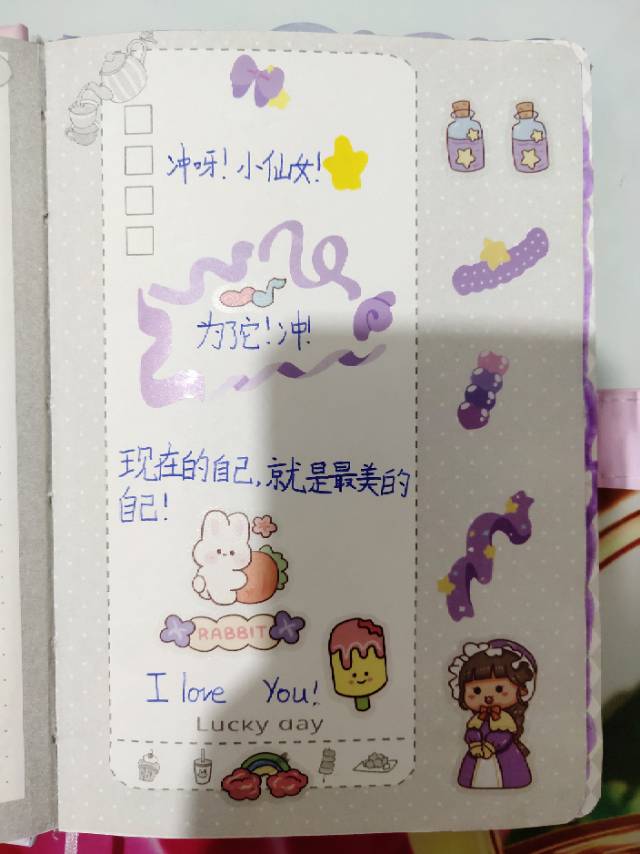 冲呀！小仙女！
为了它！冲！
现在的自己，就是最美的
自己！
RABBIT
I love You!
Lucky day